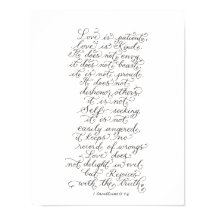 Love is patient,
Love is Kind.
It does not envy,
it does not boast,
it is not proud.
It does not
dishonor others,
it is not
Self-seeking,
it is not
easily angered,
it keeps no
record of wrongs.
Love does
not delight in evil,
but Rejoices
with the truth.
1 Corinthians 13:4-6